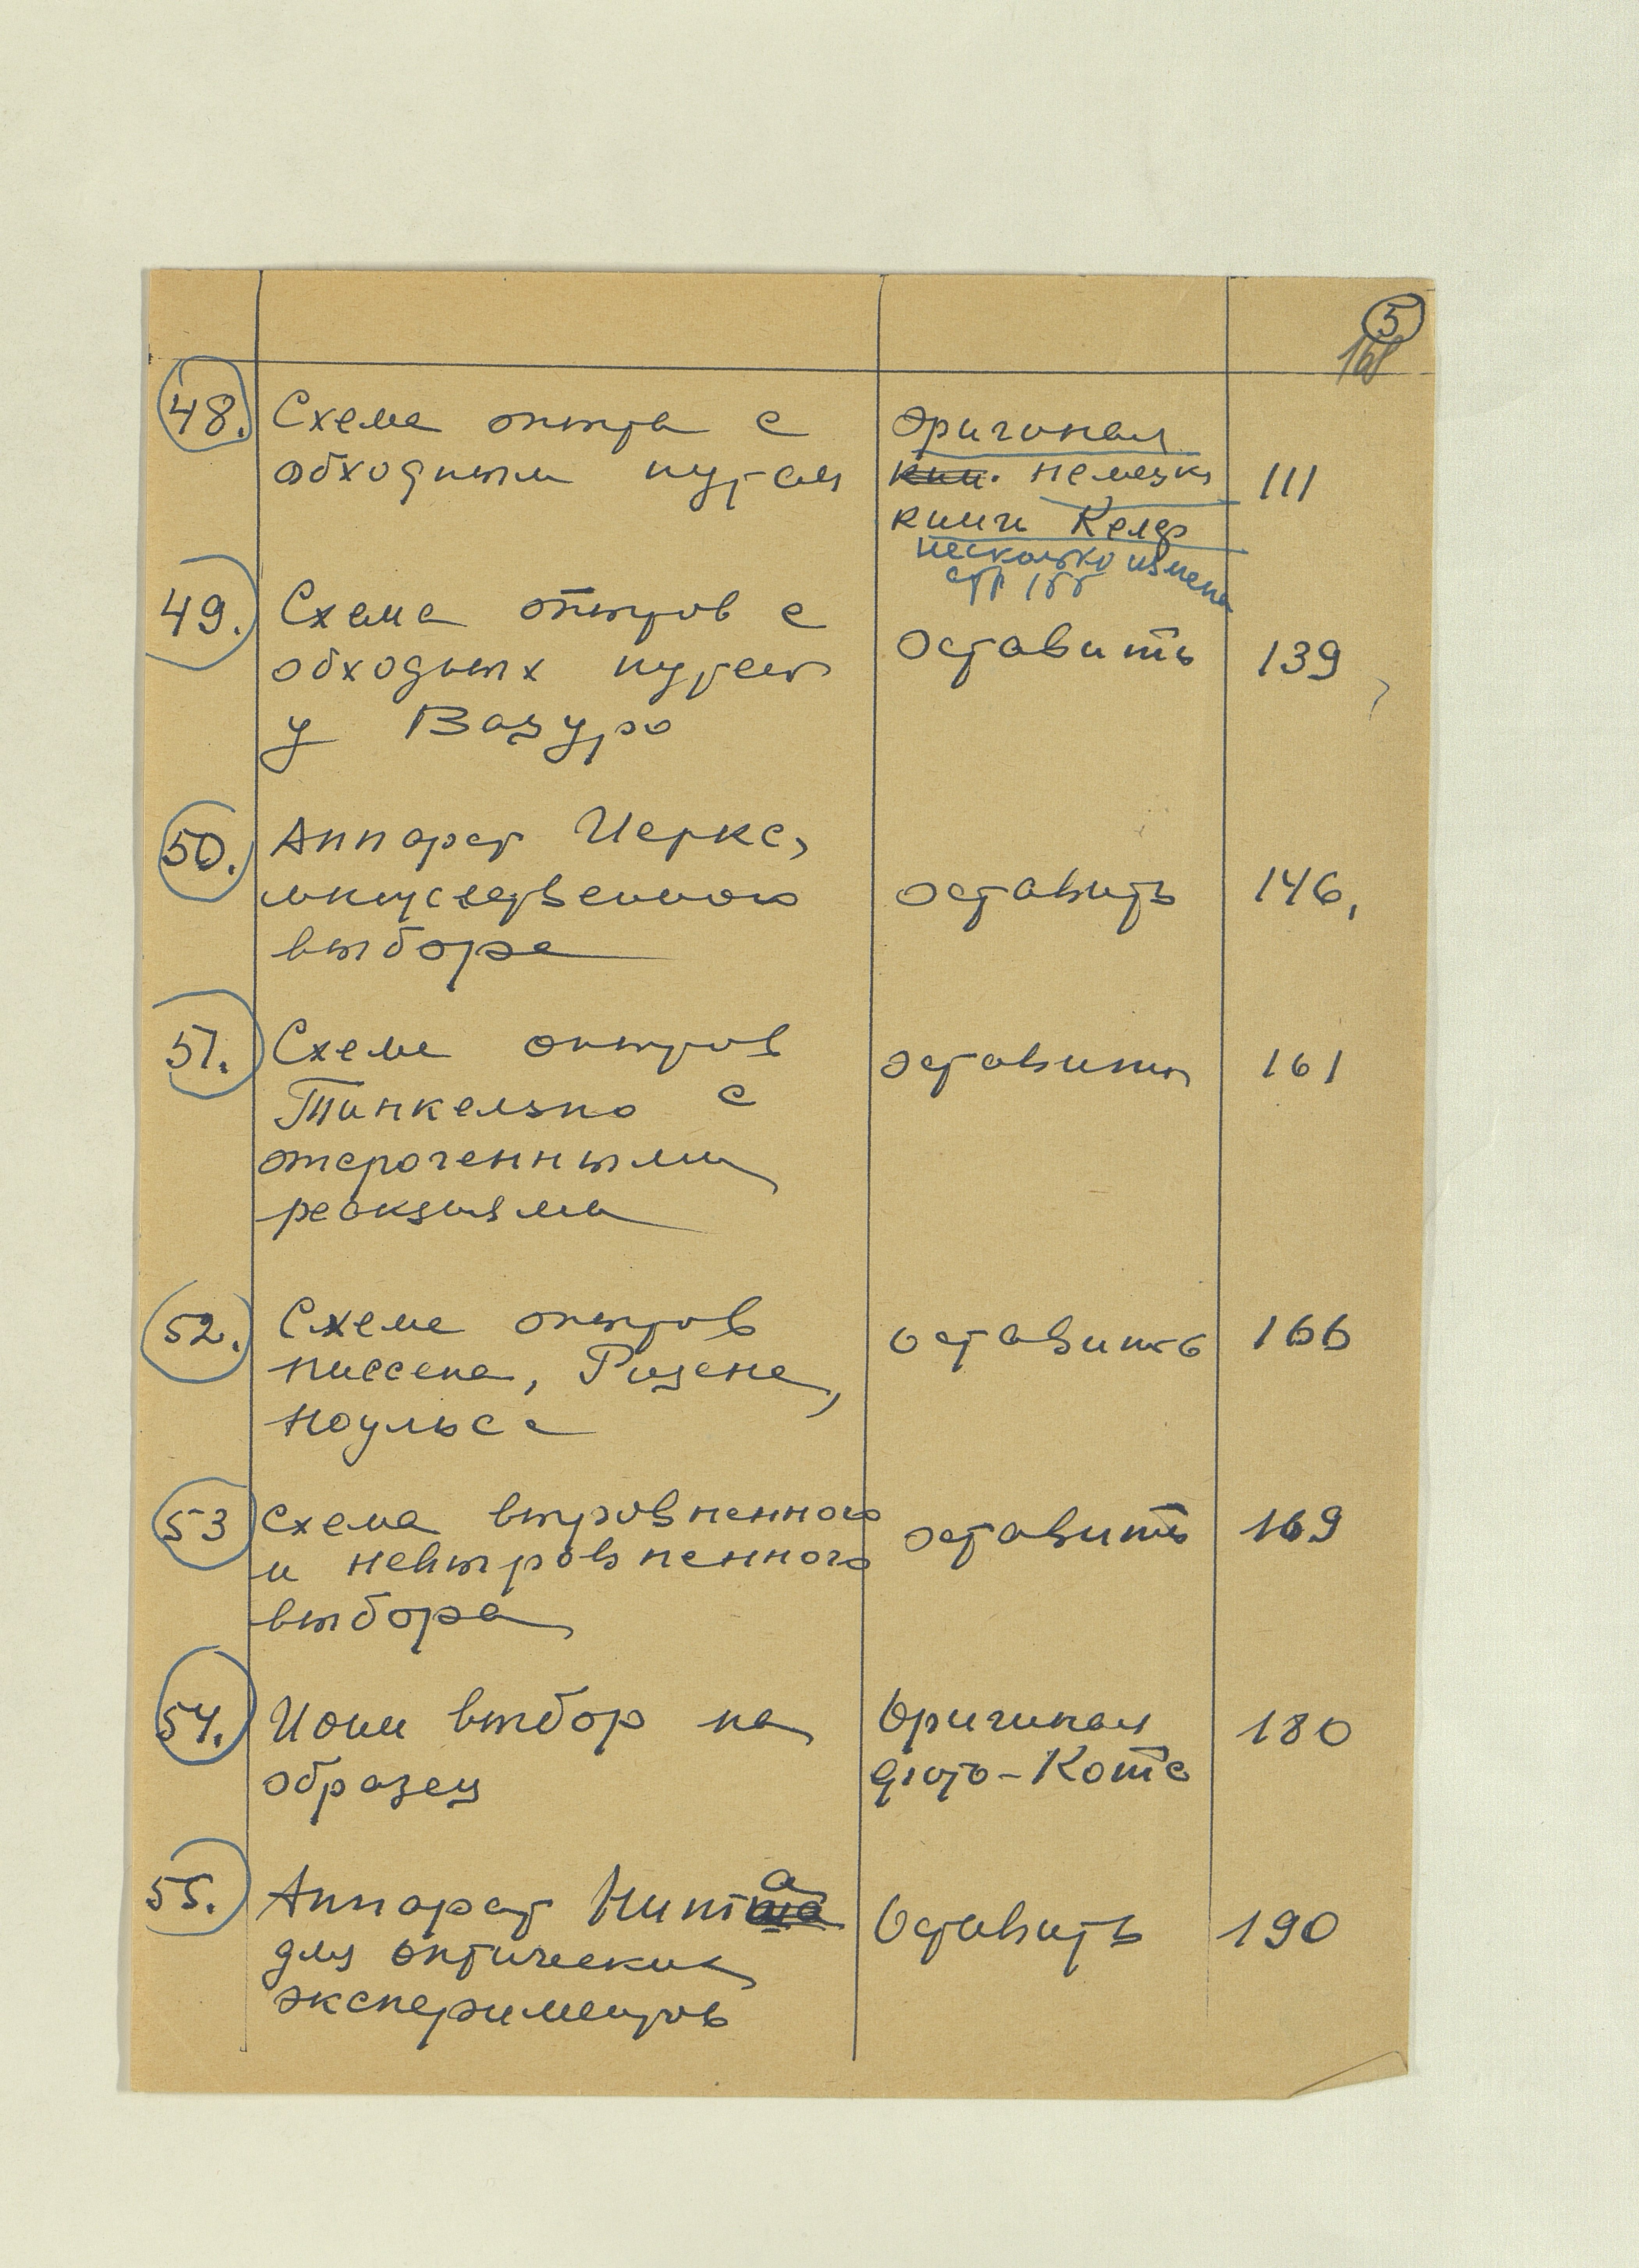 5
168
48. Схема опыта с
обходным путем
оригинал
кни. немецк
книги Келер
несколько измене
стр 155
111
49. Схема опытов с
обходных путей
у Вацуро
оставить
139
50. Аппарат Иеркс,
множественного
выбора
оставить
146,
51. Схема опытов
Тинкельпо с
отсроченными
реакциями
оставить
161
52. Схема опытов
Ниссена, Ризена,
Ноульса
оставить
166
53 Схема выровненного
и невыровненного
выбора
оставить
169
54. Иони выбор на
образец
Оригинал
фото-Котс
180
55. Аппарат Нитта
для оптических
экспериментов
Оставить
190